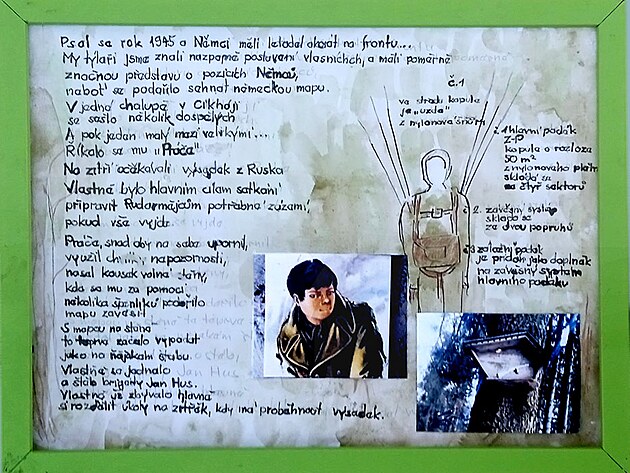 Psal se rok 1945 a Němci měli letadal akorát na frontu...
My týlaři jsme znali nazpamě poslúvaní vlasních, a měli poměrně
značnou představu o pozicích Němců,
neboť se podařilo sehnat německou mapu.
V jedné chalupě v Cikháji
se sešlo několik dospělých
A pak jeden malý mezi velikými...
Říkalo se mu "Práča"
Na zítří očekávali výsadek z Ruska
Vlastně bylo hlavním cílem setkání
připravit Rudoarmějcům potřebné zázemí,
pokud vše vyjde.
Práča, snad aby na sebe upornil,
využil chvilky nepozornosti,
našel kousek volné stěny,
kde se mu za pomoci
několika špendlíků podařilo
mapu zavěsit
S mapou na stěně
to teprve začalo vypadat
jako na nějakém štábu.
Vlastně se jednalo
o štáb brigády Jan Hus.
Vlastně už zbývalo hlavně
si rozdělit úkoly na zítřek, kdy má proběhnout výsadek.
č.1
ve středu kopule
je "uzda"
z nylonových šňůr
1 hlavní padák
kopula o rozloze
50 m²
z nylonového plátna
skládá se
ze čtyř sektorů
2. závěsný systém
skládá se
ze dvou popruhů
3 záložní padák
je přidán jako doplněk
na závěsný systém
hlavního padáku